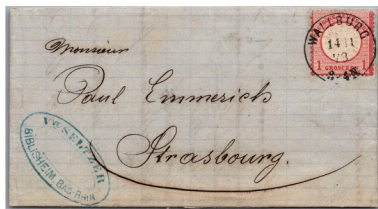 WALLBURG
1 GROSCHEN 1
Monsieur
Paul Emmerich
Strasbourg.
SELTZER
BIBLISHEIM BAS-RHIN